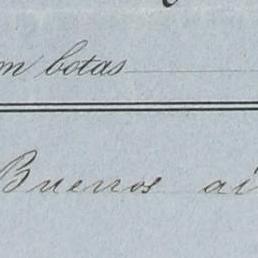 m botas
Buenos ai